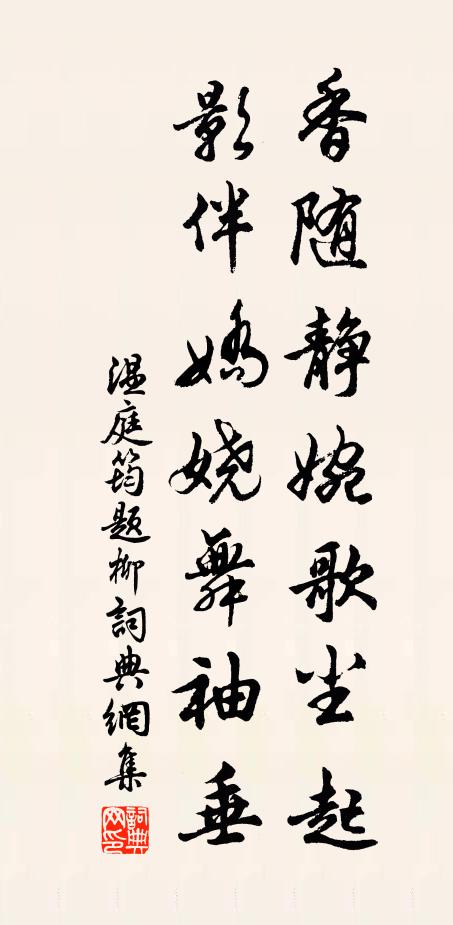 香随静婉歌尘起
影伴嬌娆舞袖垂
温庭筠题柳詞典網集
詞典网印